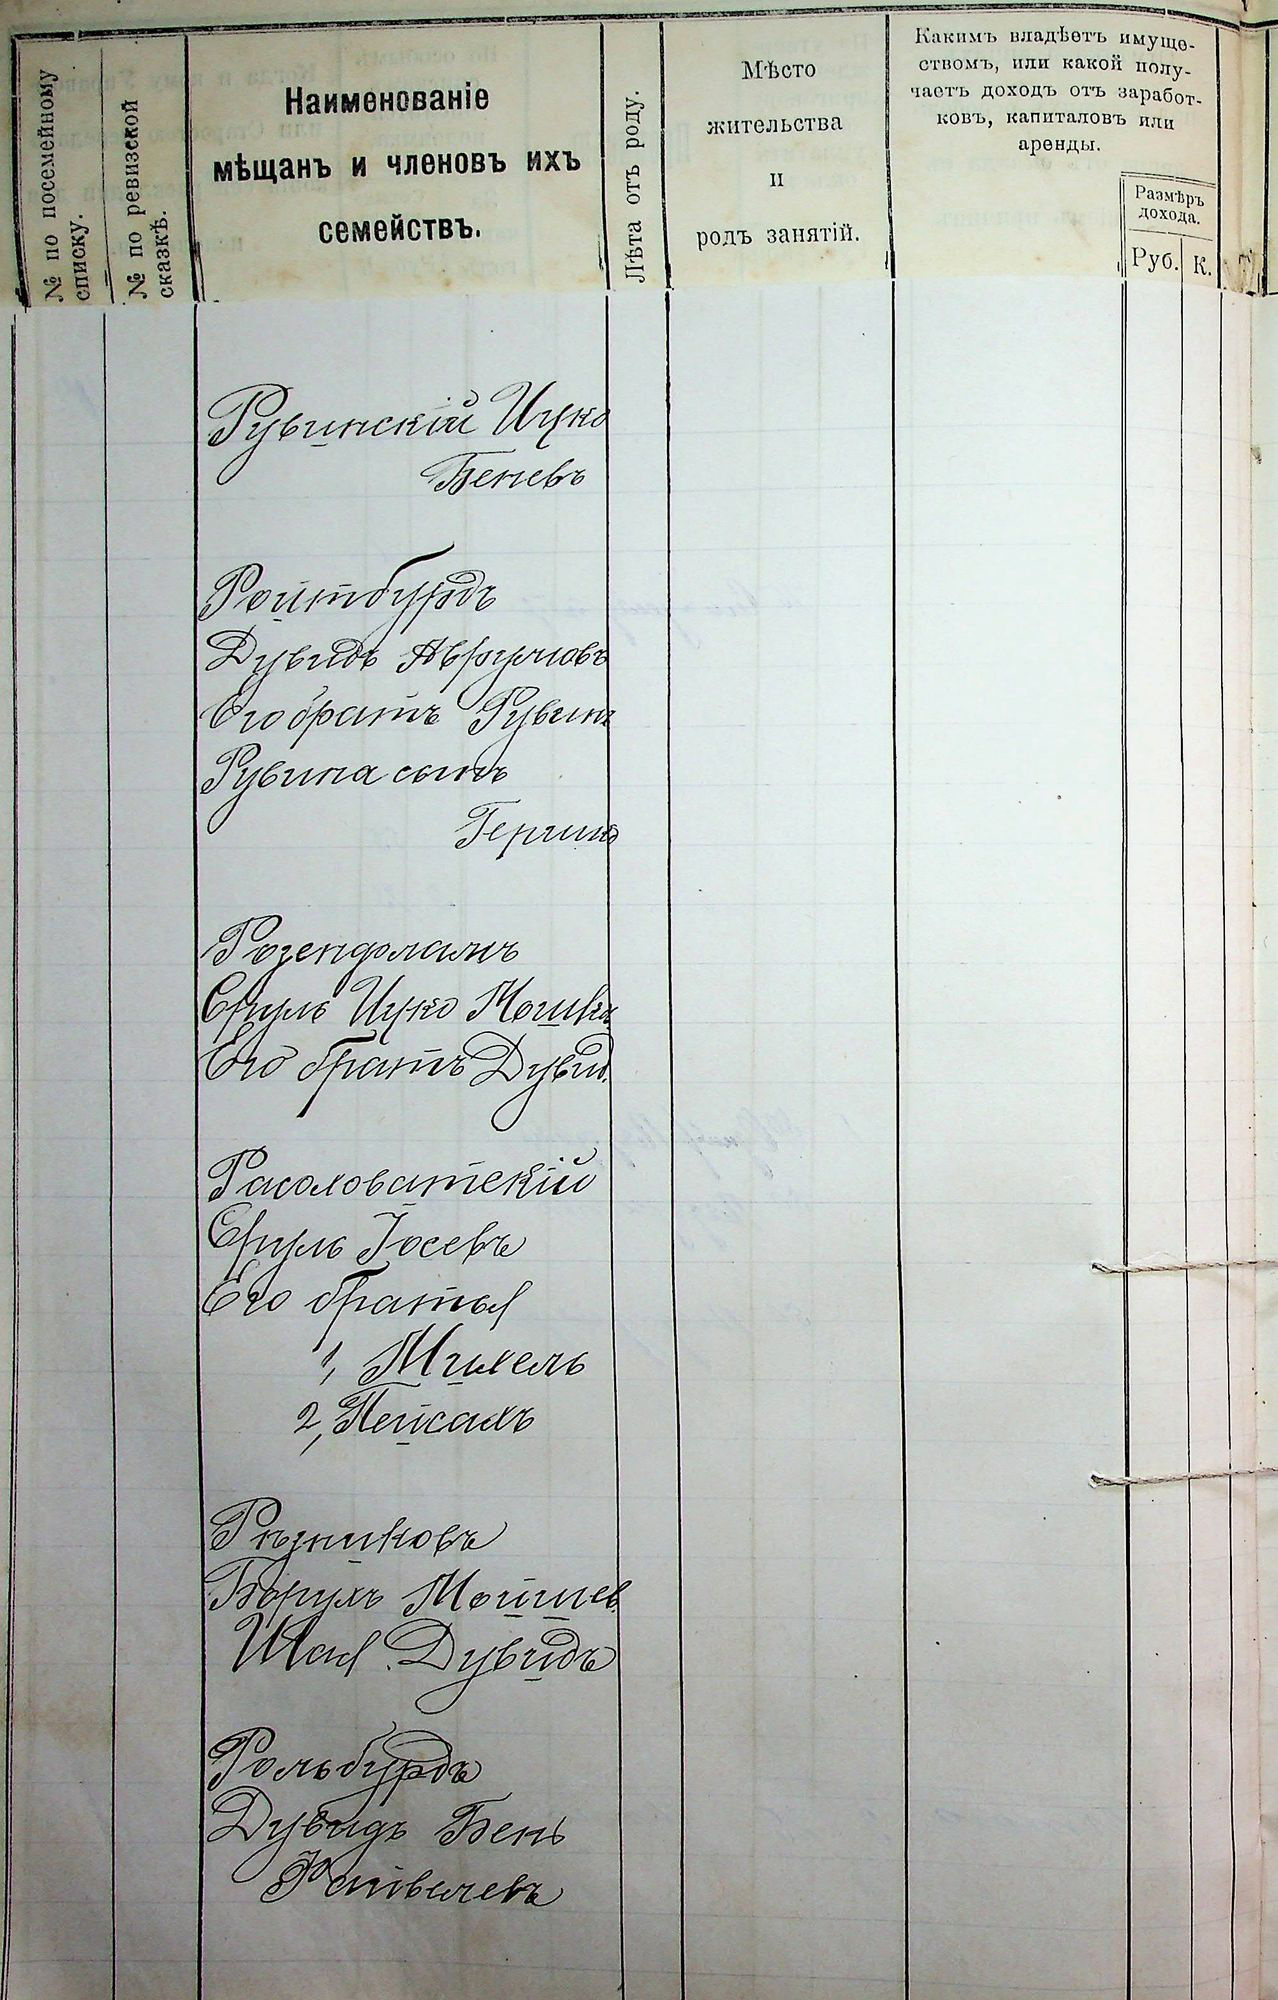 № по посемейному
списку.
№ по ревизской
сказкѣ.
Наименованіе
мѣщанъ и членовъ ихъ
семействъ.
Лѣта отъ роду.
Мѣсто
жительства
и
родъ занятій.
Какимъ владѣетъ имуще-
ствомъ, или какой полу-
чаетъ доходъ отъ заработ-
ковъ, капиталовъ или
аренды.
Размѣръ
дохода.
Руб.
К.
Рувинскій Ицко
Беневъ
Ройтбурдъ
Дувидъ Аврумовъ
Его братъ Рувинъ
Рувина сынъ
Розенфламъ
Сруль Ицко Мошков
Его братъ Дувид.
Расоловатскій
Сруль Іосевъ
Его братья
1, Михель
2, Пейсахъ
Рѣзниковъ
Борухъ Мойшев.
Шая Дувидъ
Рольбурдъ
Дувидъ Бень